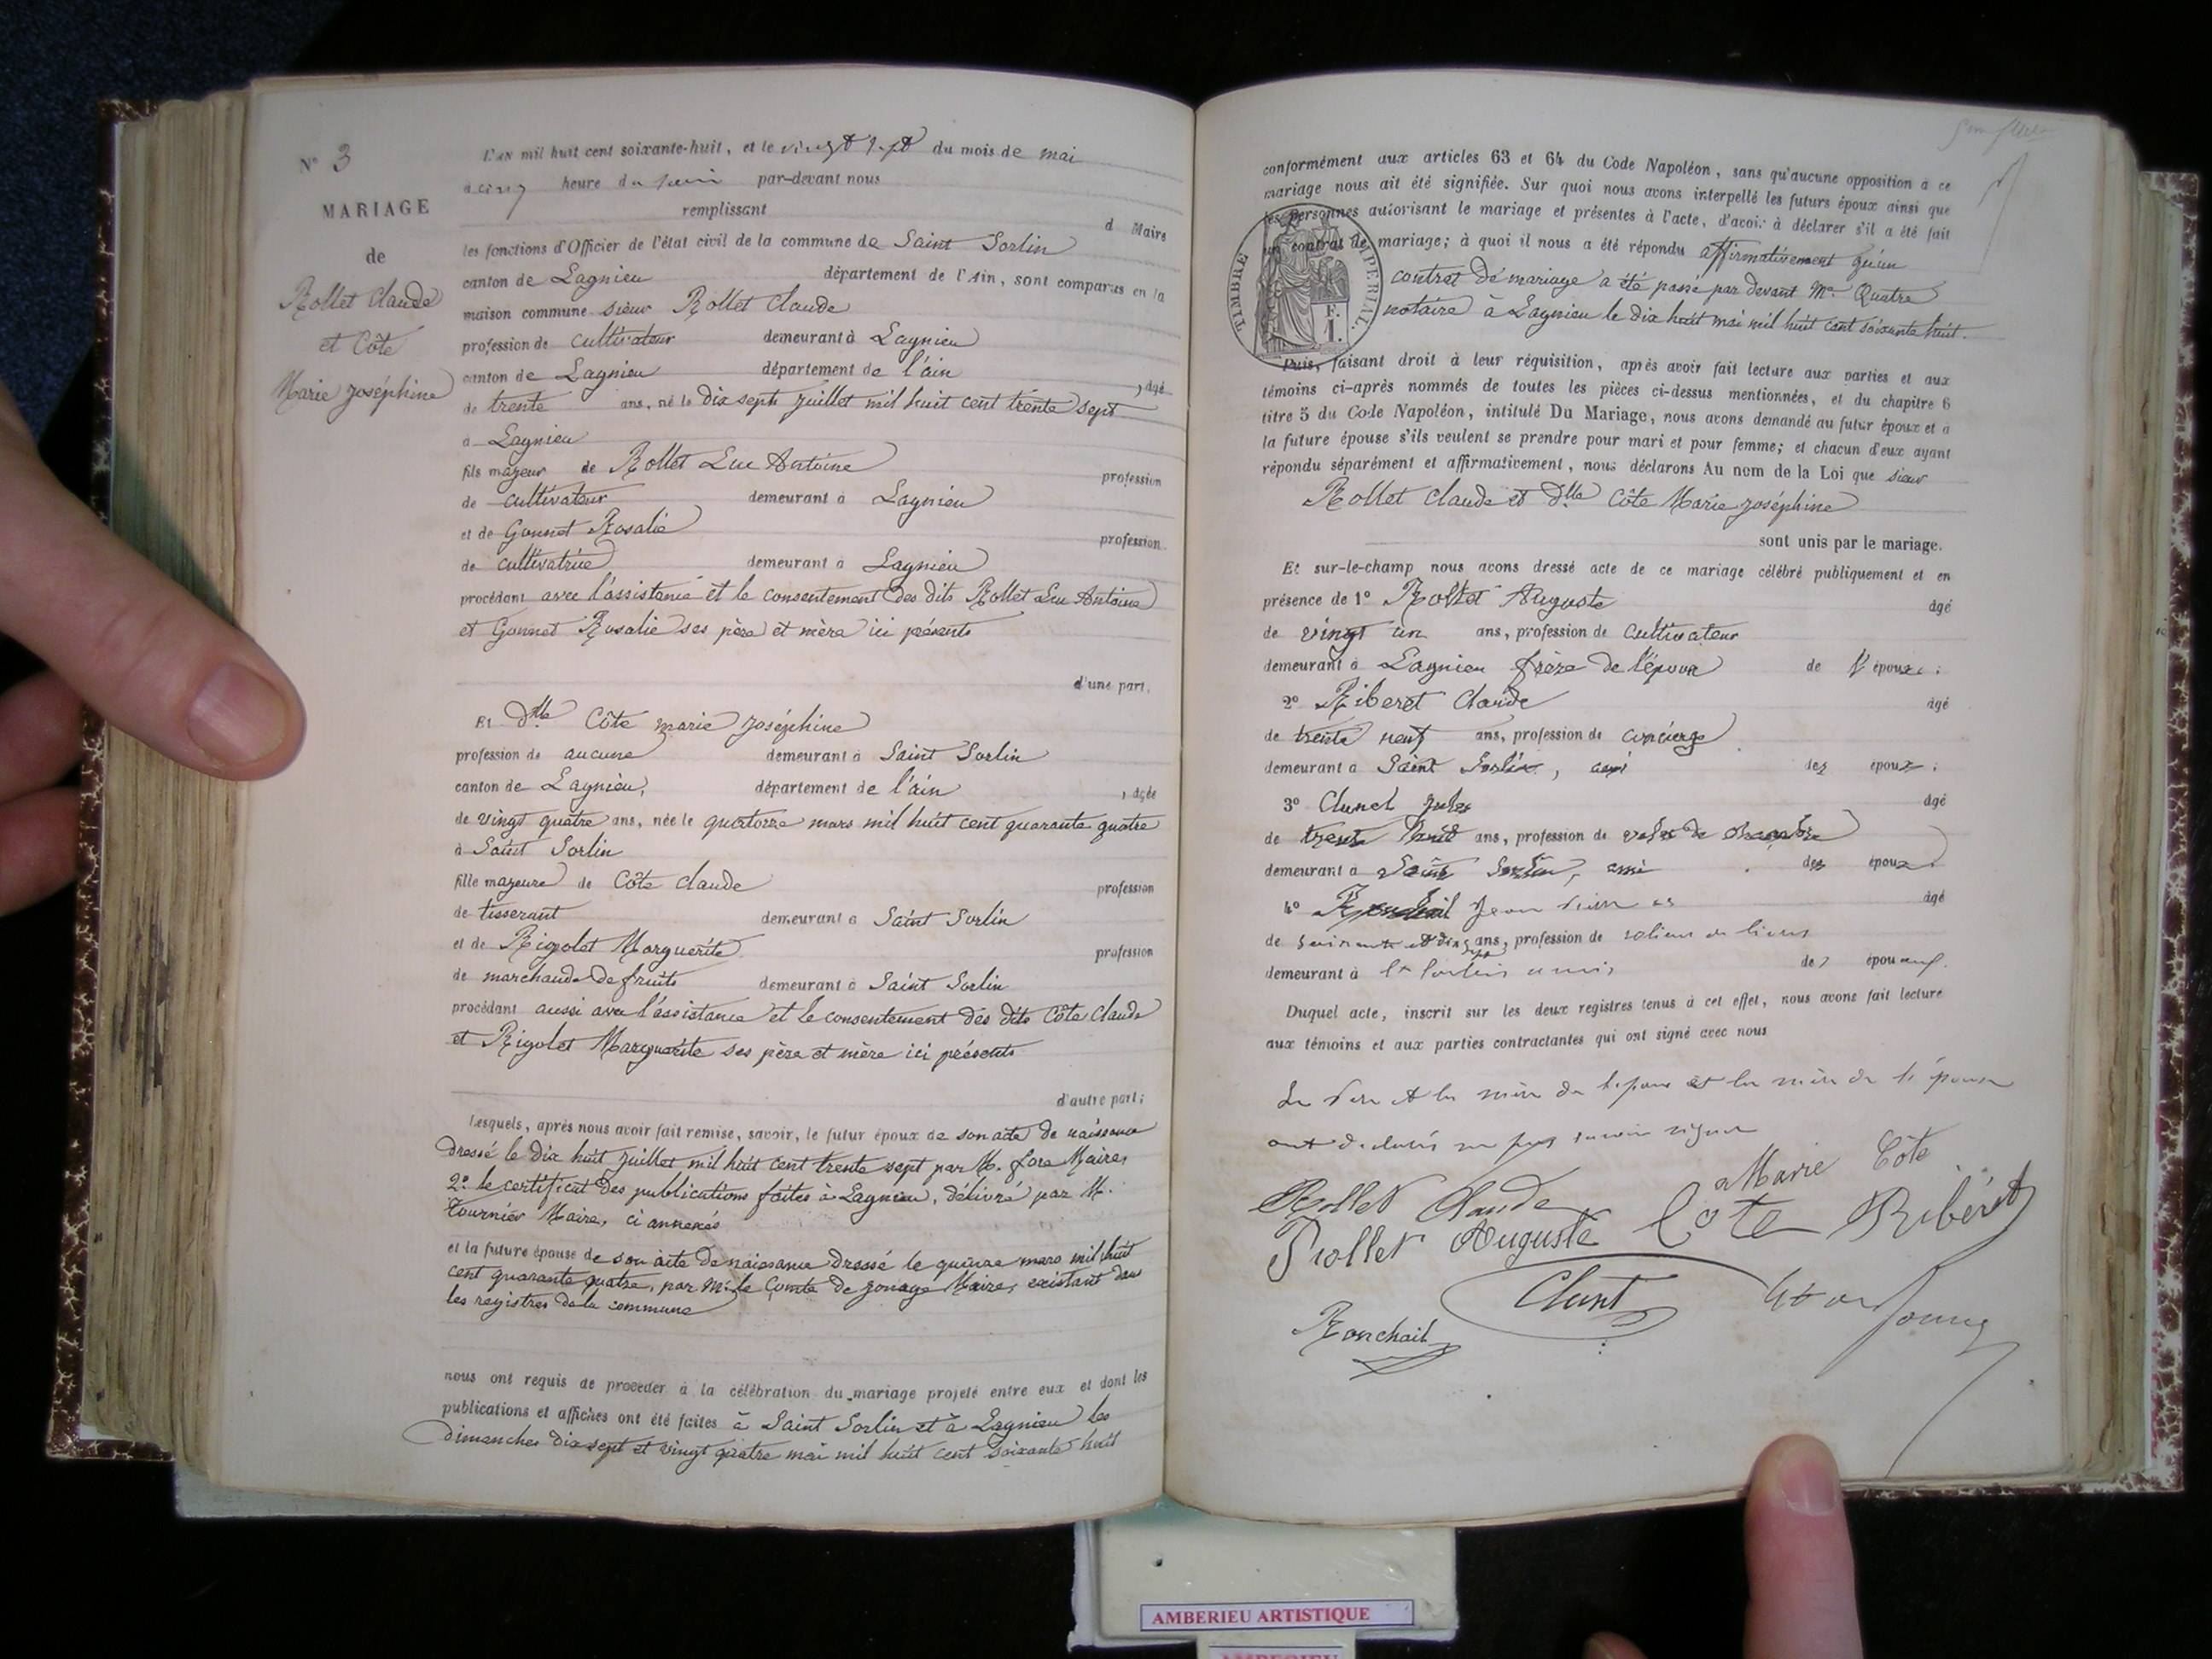 N° 3
MARIAGE
de
Rollet Claude
et Côte
Marie Joséphine
L'AN mil huit cent soixante-huit, et le vingt sept du mois de mai
a cinq heure du soir par-devant nous
remplissant d Maire
les fonctions d'Officier de l'état civil de la commune de Saint Sorlin
canton de Lagnieu département de l'Ain, sont comparus en la
maison commune sieur Rollet Claude
profession de cultivateur demeurant à Lagnieu
canton de Lagnieu département de l'ain , âgé
de trente ans, né le dix sept juillet mil huit cent trente sept
à Lagnieu
fils majeur de Rollet Luc Antoine profession
de cultivateur demeurant à Lagnieu
et de Gonnet Rosalie profession
de cultivatrice demeurant à Lagnieu
procédant avec l'assistance et le consentement des dits Rollet Luc Antoine
et Gonnet Rosalie ses père et mère ici présents
d'une part,
Et dlle Côte marie Joséphine
profession de aucune demeurant à Saint Sorlin
canton de Lagnieu, département de l'ain , âgée
de vingt quatre ans, née le quatorze mars mil huit cent quarante quatre
à Saint Sorlin
fille majeure de Côte Claude profession
de tisserant demeurant à Saint Sorlin
et de Rigolet Marguerite profession
de marchande de fruits demeurant à Saint Sorlin
procédant aussi avec l'assistance et le consentement des dits Côte Claude
et Rigolet Marguerite ses père et mère ici présents
d'autre part;
Lesquels, après nous avoir fait remise, savoir, le futur époux de son acte de naissance
dressé le dix huit juillet mil huit cent trente sept par M. fore Maire,
2° le certificat des publications faites à Lagnieu, délivré par M.
Tournier Maire, ci annexés
et la future épouse de son acte de naissance dressé le quinze mars mil huit
cent quarante quatre, par Mr le Comte de Jonage Maire, existant dans
les registres de la commune
nous ont requis de procéder à la célébration du mariage projeté entre eux et dont les
publications et affiches ont été faites à Saint Sorlin et à Lagnieu les
dimanches dix sept et vingt quatre mai mil huit cent soixante huit
conformément aux articles 63 et 64 du Code Napoléon, sans qu'aucune opposition à ce
mariage nous ait été signifiée. Sur quoi nous avons interpellé les futurs époux ainsi que
les personnes autorisant le mariage et présentes à l'acte, d'avoir à déclarer s'il a été fait
un contrat de mariage; à quoi il nous a été répondu affirmativement qu'un
contrat de mariage a été passé par devant Me Quatre
notaire à Lagnieu le dix huit mai mil huit cent soixante huit.
TIMBRE IMPERIAL.
1 F.
Puis, faisant droit à leur réquisition, après avoir fait lecture aux parties et aux
témoins ci-après nommés de toutes les pièces ci-dessus mentionnées, et du chapitre 6
titre 5 du Code Napoléon, intitulé Du Mariage, nous avons demandé au futur époux et à
la future épouse s'ils veulent se prendre pour mari et pour femme; et chacun d'eux ayant
répondu séparément et affirmativement, nous déclarons Au nom de la Loi que sieur
Rollet Claude et dlle Côte Marie Joséphine
sont unis par le mariage.
Et sur-le-champ nous avons dressé acte de ce mariage célébré publiquement et en
présence de 1° Rollet Auguste âgé
de vingt un ans, profession de cultivateur
demeurant à Lagnieu frère de l'époux de l'époux;
2° Riberet Claude âgé
de trente neuf ans, profession de concierge
demeurant à Saint Sorlin, ami des époux;
3° Clunet Jules âgé
de trente huit ans, profession de valet de chambre
demeurant à Saint Sorlin, ami des époux
4° Ronchail Jean âgé
de soixante et dix sept ans, profession de relieur de livres
demeurant à St Sorlin amis des époux.
Duquel acte, inscrit sur les deux registres tenus à cet effet, nous avons fait lecture
aux témoins et aux parties contractantes qui ont signé avec nous
Le Père et la mère de l'époux et la mère de l'épouse
ont déclarés ne pas savoir signer
Rollet Claude Marie Côte
Rollet Auguste Côte Ribéret
Clunt
Ronchail
AMBERIEU ARTISTIQUE
AMBERIEU